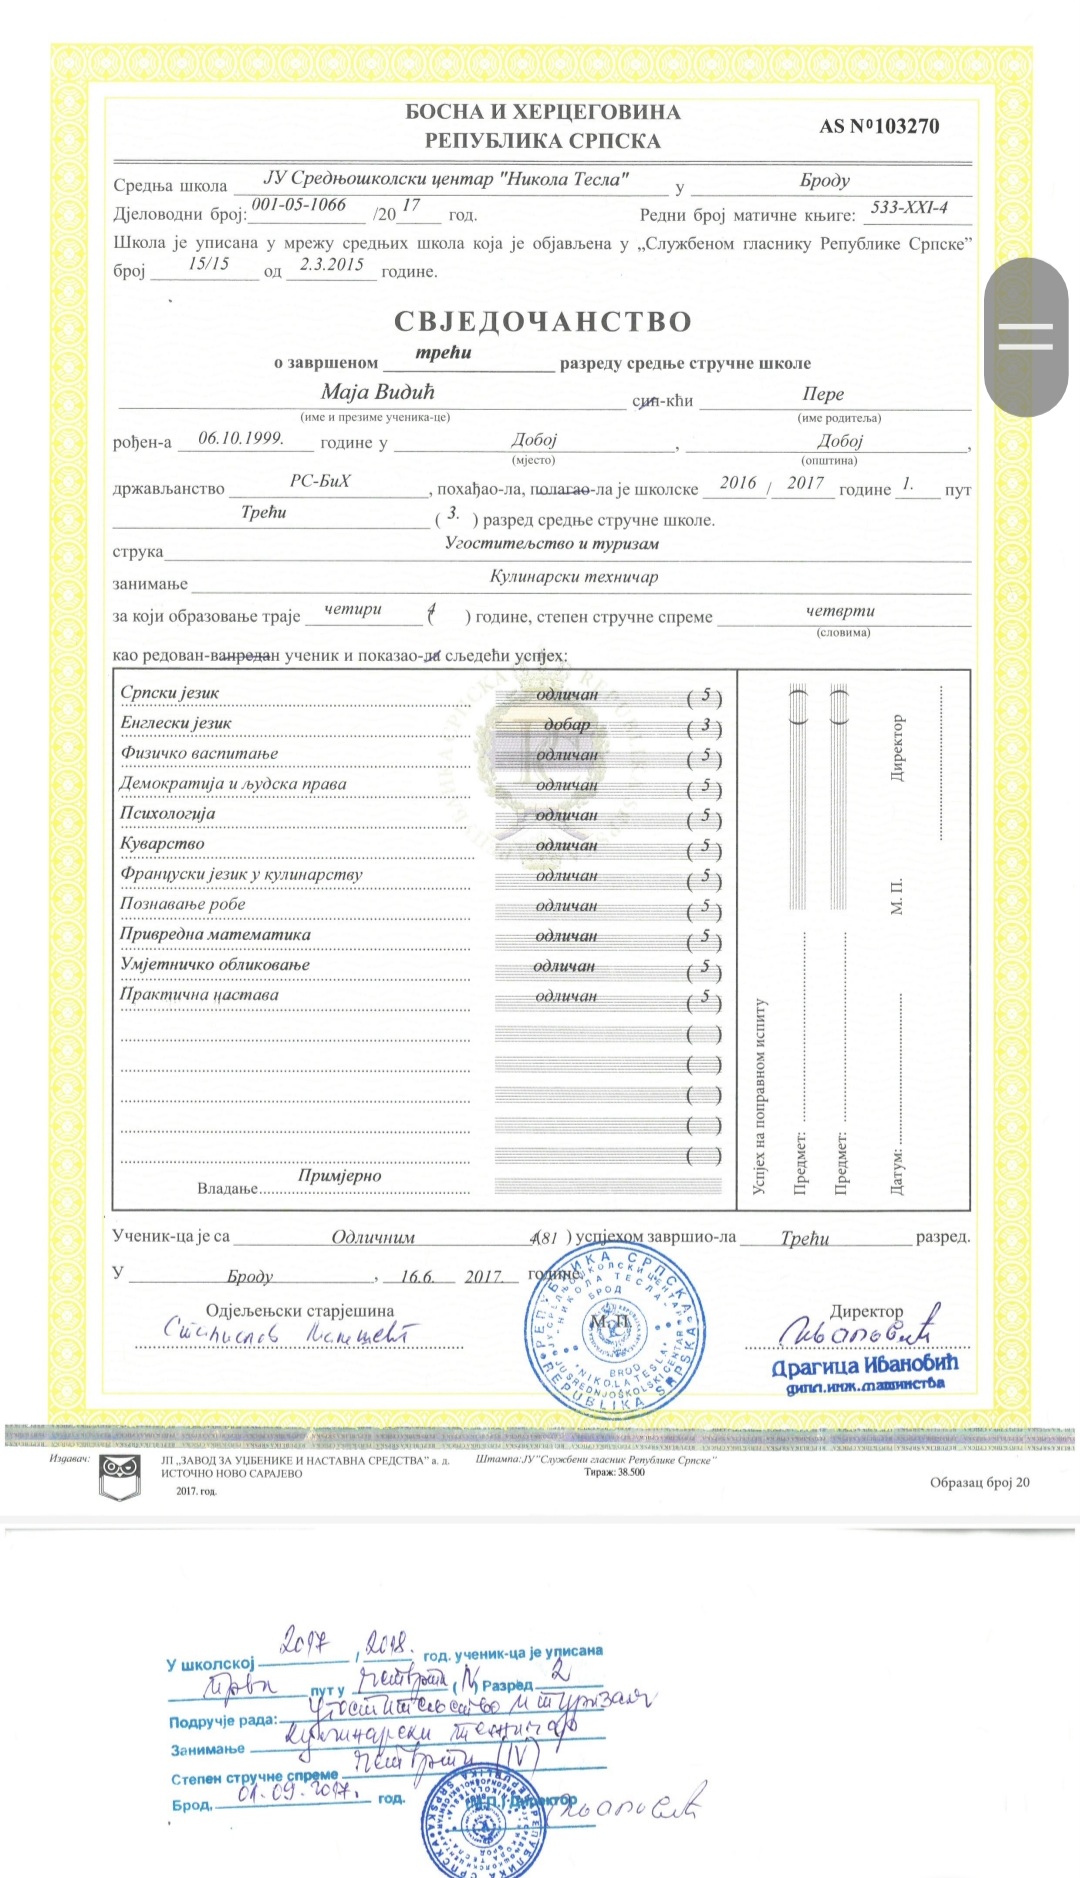 БОСНА И ХЕРЦЕГОВИНА
РЕПУБЛИКА СРПСКА
AS Nº103270
Средња школа ЈУ Средњошколски центар "Никола Тесла" у Броду
Дјеловодни број: 001-05-1066 /20 17 год. Редни број матичне књиге: 533-XXI-4
Школа је уписана у мрежу средњих школа која је објављена у „Службеном гласнику Републике Српске”
број 15/15 од 2.3.2015 године.
СВЈЕДОЧАНСТВО
о завршеном трећи разреду средње стручне школе
Маја Видић син-кћи Пере
(име и презиме ученика-це) (име родитеља)
рођен-а 06.10.1999. године у Добој, Добој,
(мјесто) (општина)
држављанство РС-БиХ, похађао-ла, полагао-ла је школске 2016 / 2017 године 1. пут
Трећи ( 3. ) разред средње стручне школе.
струка Угоститељство и туризам
занимање Кулинарски техничар
за који образовање траје четири ( 4 ) године, степен стручне спреме четврти
(словима)
као редован-ванредан ученик и показао-ла сљедећи успјех:
Српски језик одличан ( 5 )
Енглески језик добар ( 3 )
Физичко васпитање одличан ( 5 )
Демократија и људска права одличан ( 5 )
Психологија одличан ( 5 )
Куварство одличан ( 5 )
Француски језик у кулинарству одличан ( 5 )
Познавање робе одличан ( 5 )
Привредна математика одличан ( 5 )
Умјетничко обликовање одличан ( 5 )
Практична настава одличан ( 5 )
( )
( )
( )
( )
( )
Владање Примјерно
Успјех на поправном испиту
Предмет: ( )
Предмет: ( )
Датум: М. П. Директор
Ученик-ца је са Одличним ( 4,81 ) успјехом завршио-ла Трећи разред.
У Броду, 16.6. 2017. године.
Одјељенски старјешина М. П. Директор
Драгица Ивановић
дипл.инж.машинства
РЕПУБЛИКА СРПСКА
ЈУ СРЕДЊОШКОЛСКИ ЦЕНТАР
"НИКОЛА ТЕСЛА"
БРОД
BROD
"NIKOLA TESLA"
JU SREDNJOŠKOLSKI CENTAR
REPUBLIKA SRPSKA
Издавач: ЈП „ЗАВОД ЗА УЏБЕНИКЕ И НАСТАВНА СРЕДСТВА” а. д.
ИСТОЧНО НОВО САРАЈЕВО
2017. год.
Штампа: ЈУ "Службени гласник Републике Српске"
Тираж: 38.500
Образац број 20
У школској 2017 / 2018. год. ученик-ца је уписана
први пут у четврти (IV) Разред 2
Подручје рада: Угоститељство и туризам
Занимање кулинарски техничар
Степен стручне спреме четврти (IV)
Брод, 01.09.2017. год. (М.П.) Директор